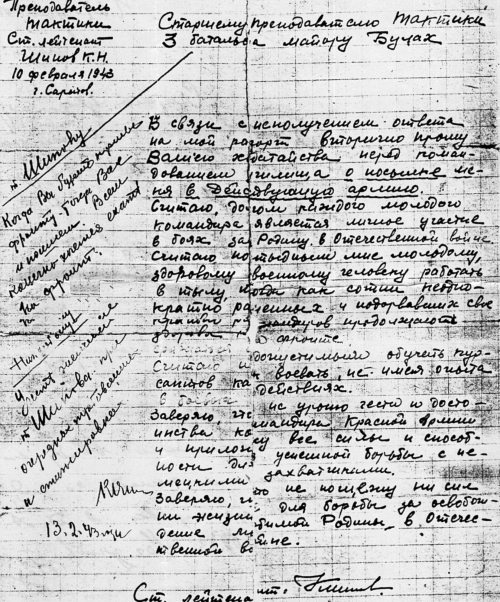 Преподаватель
тактики
Ст. лейтенант
Шипов К.Н.
10 февраля 1943
г. Саратов.
Старшему преподавателю тактики
3 батальона майору Булах
В связи с неполучением ответа
на мой рапорт вторично прошу
Вашего ходатайства перед коман-
дованием училища о посылке ме-
ня в Действующую армию.
Считаю, долгом каждого молодого
командира является личное участие
в боях за Родину, в Отечественной войне
Считаю постыдным мне молодому,
здоровому военному человеку работать
в тылу, когда как сотни неодно-
кратно раненных и подорвавших свое
здоровье командиров продолжают
фронте.
Считаю допустимым обучать кур-
сантов воевать, не имея опыта
в боевых действиях.
Заверяю, что не уроню чести и досто-
инства командира Красной Армии
и приложу все силы и способ-
ности для успешной борьбы с не-
мецкими захватчиками.
Заверяю, что не пощажу ни сил
ни жизни для борьбы за освобож-
дение любимой Родины, в Отече-
ственной войне.
Ст. лейтенант.
т. Шипову
Когда Вы будете нужны
фронту, тогда Вас
и пошлем. Всем
конечно хочется ехать
на фронт.
Нач.
Учесть желание
т. Шипова при
очередной
и стажировке
13.2.43